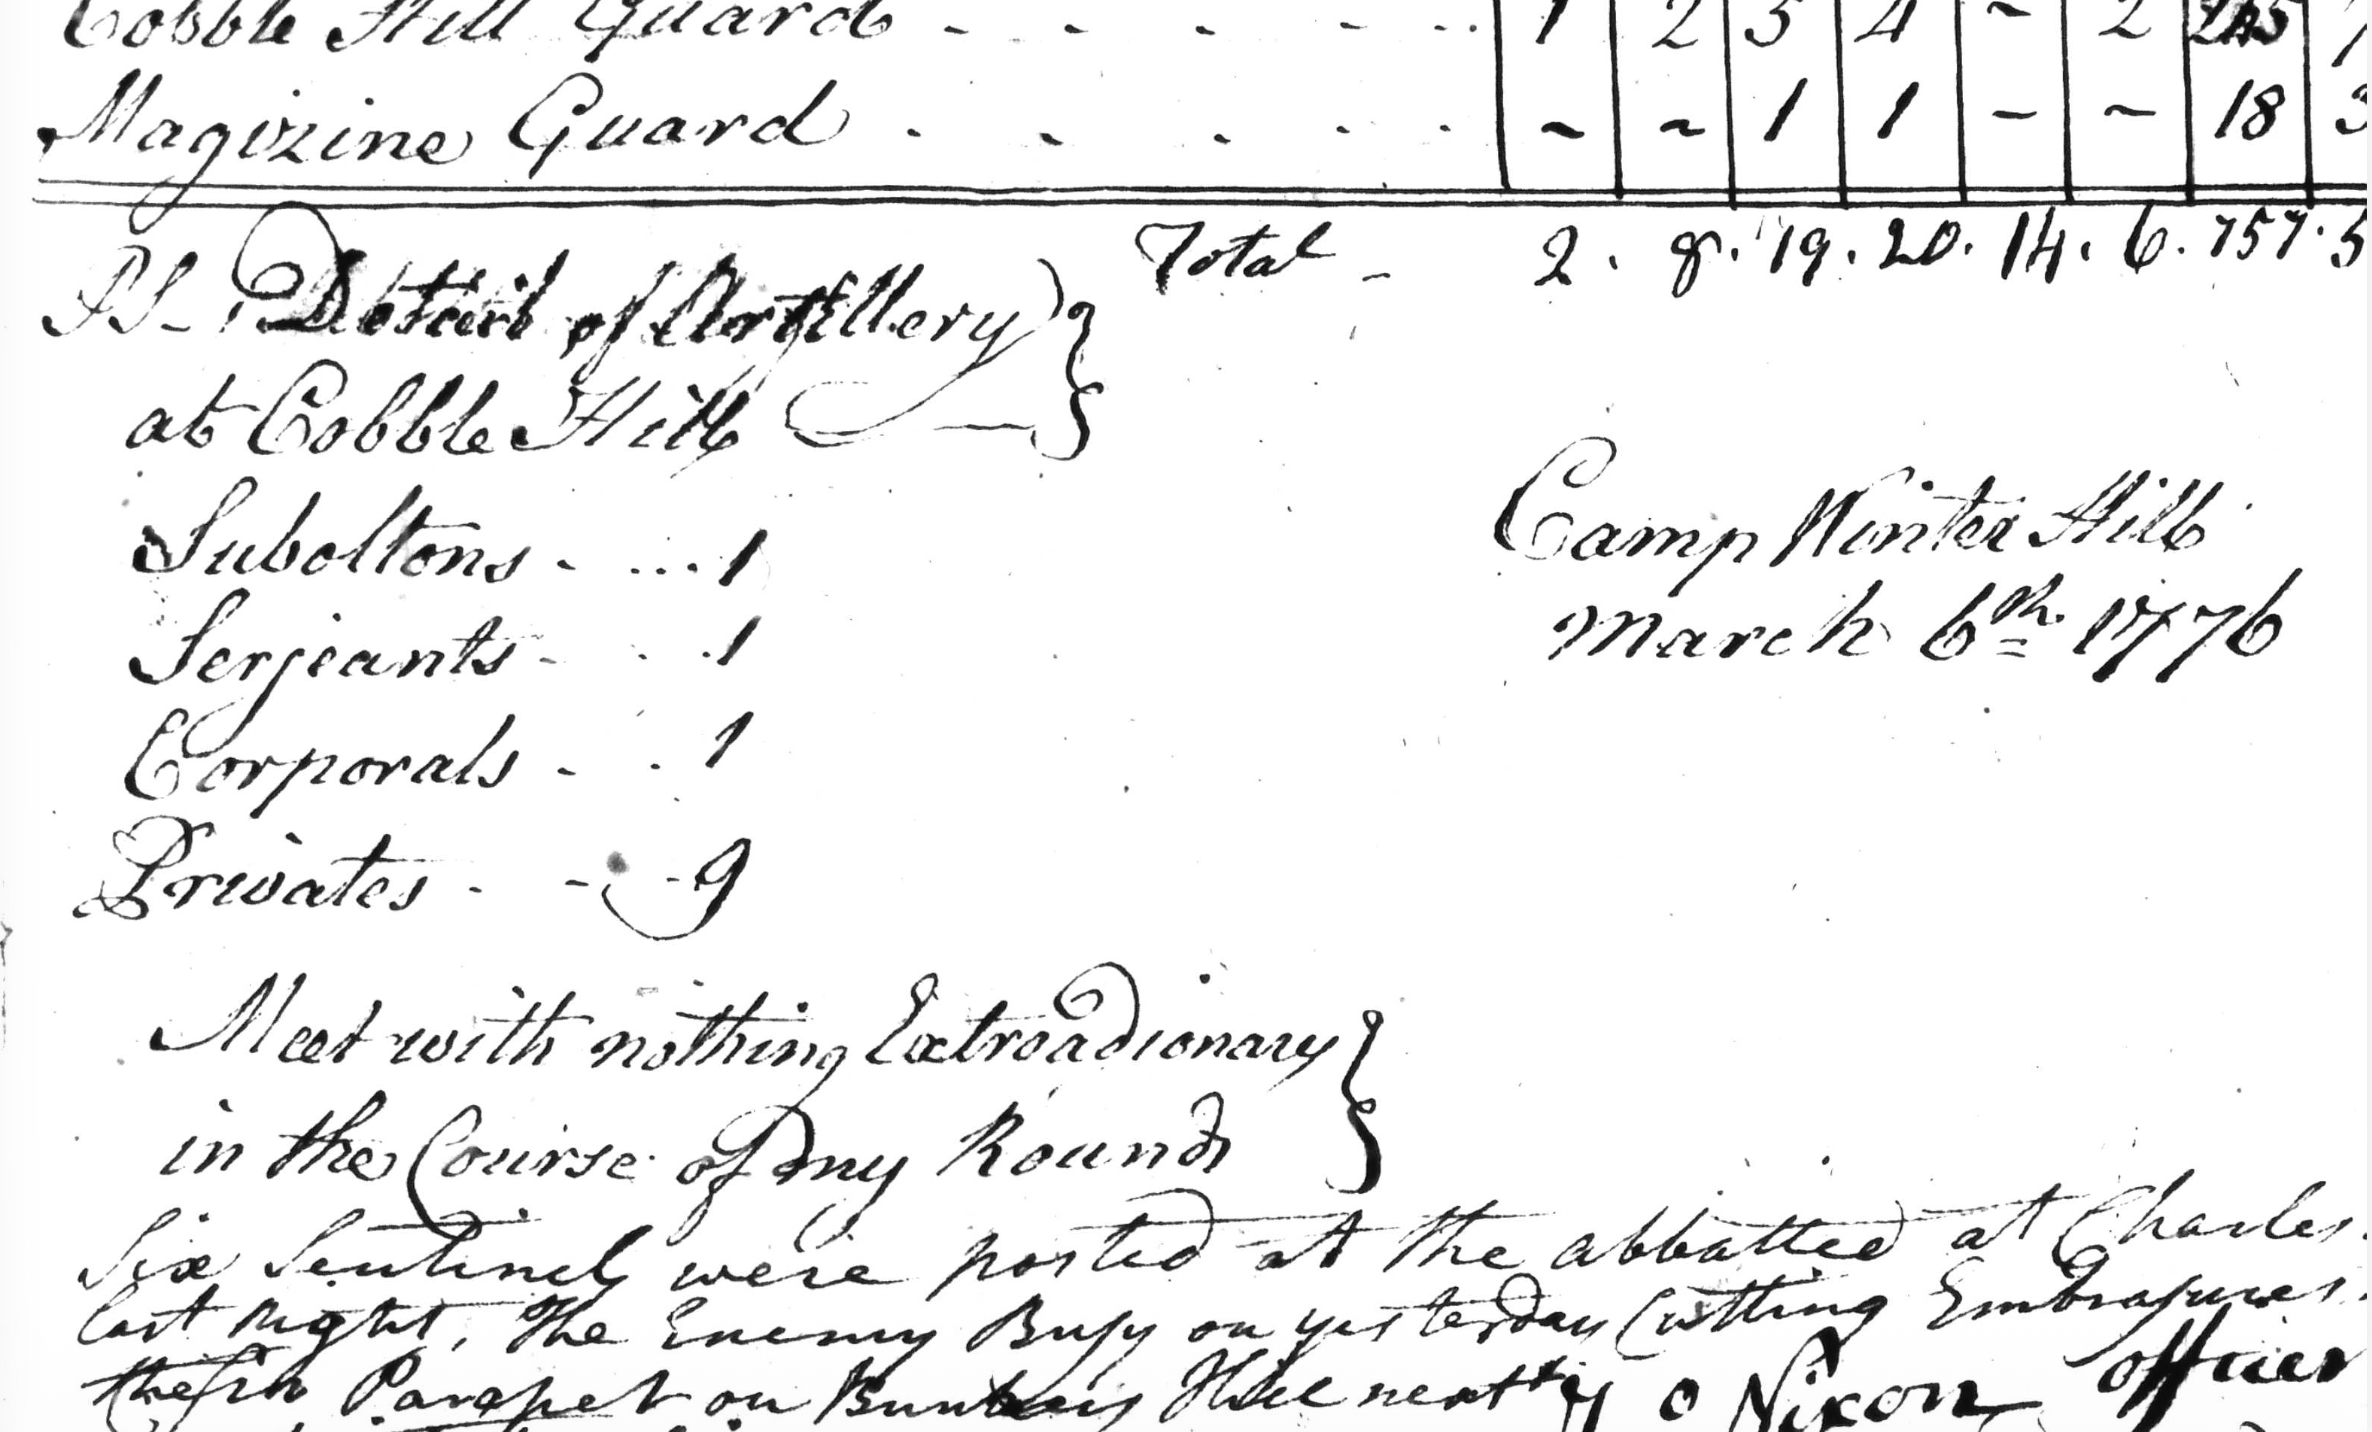 Cobble Hill Guard - - - - - 1 2 5 4 ~ 2
Magizine Guard - - - - - ~ ~ 1 1 ~ ~ 18 3
Total - 2. 8. 19. 20. 14. 6. 757. 5
PS - Detail of Artillery
at Cobble Hill
Suboltons - ... 1
Serjeants - . . 1
Corporals - . 1
Privates - - - 9
Camp Winter Hill
March 6th 1776
Meet with nothing Extroadionary
in the Course of my Rounds
Six Sentinels were posted at the abbattee at Charles
last Night, The Enemy Busy on yesterday Cutting Embrasures
Parapet on Bunkers Hill next
Nixon officer